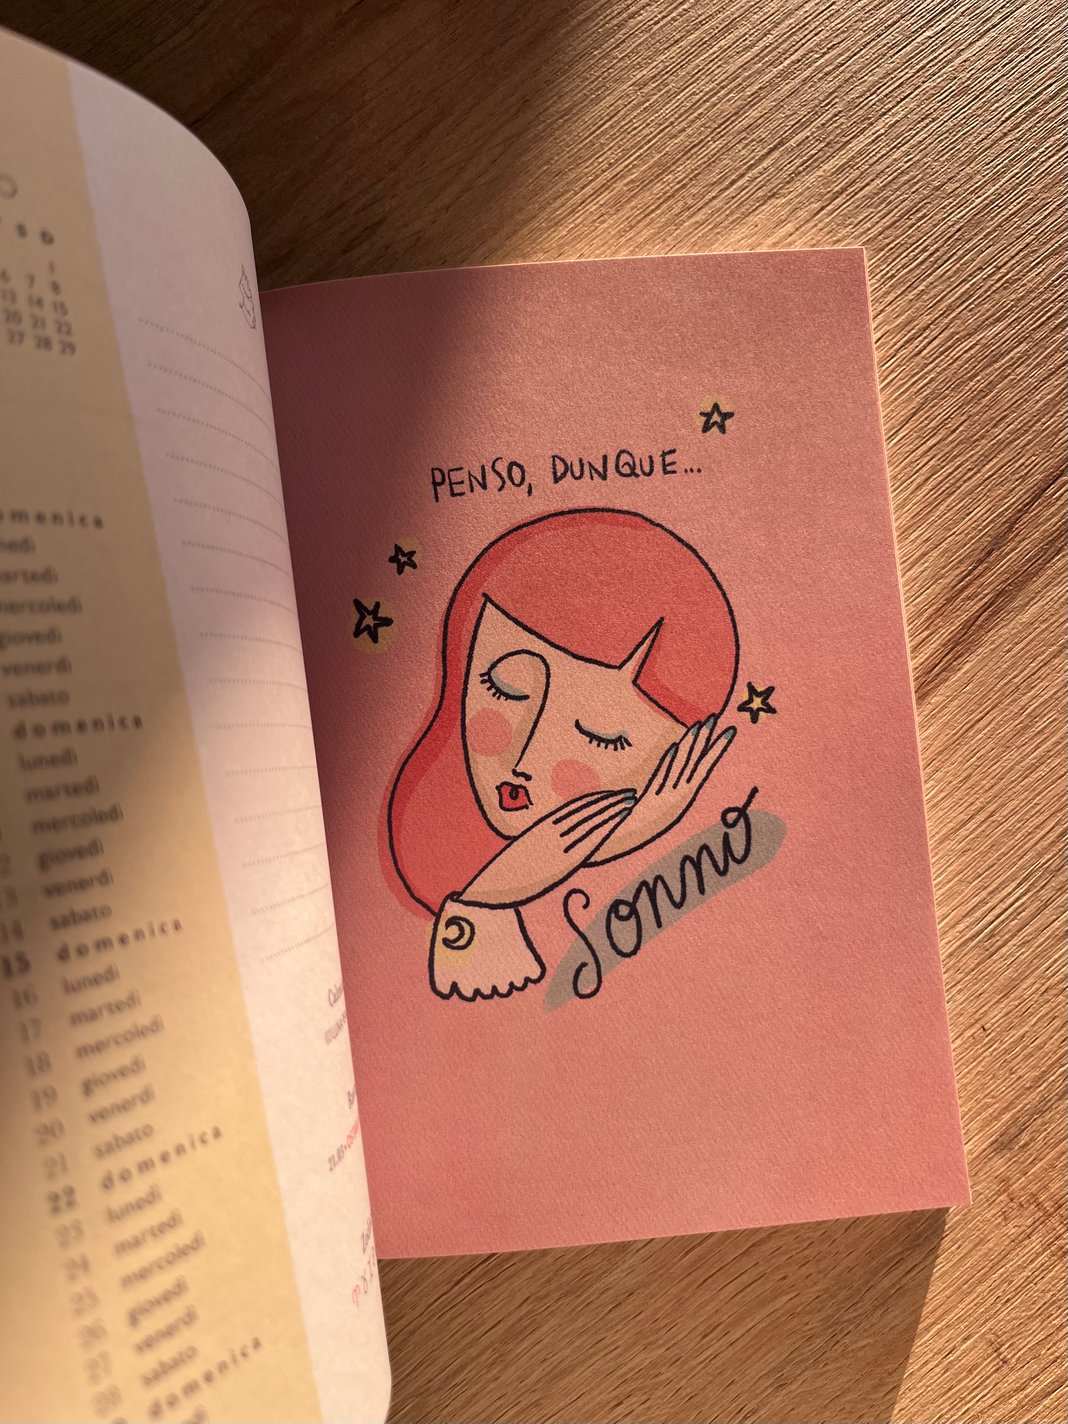 S D
1
6 7 8
13 14 15
20 21 22
27 28 29
domenica
martedì
mercoledì
giovedì
venerdì
sabato
domenica
lunedì
martedì
mercoledì
giovedì
13 venerdì
14 sabato
15 domenica
16 lunedì
17 martedì
18 mercoledì
19 giovedì
20 venerdì
21 sabato
22 domenica
23 lunedì
24 martedì
25 mercoledì
26 giovedì
27 venerdì
28 sabato
domenica
PENSO, DUNQUE...
Sonno